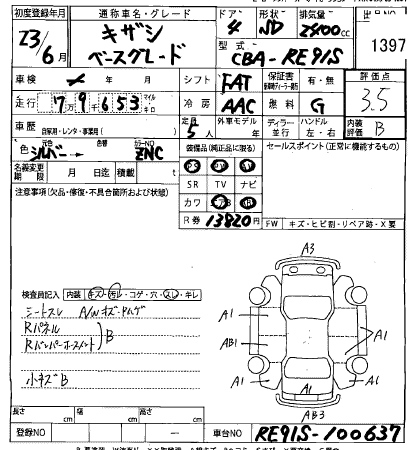 初度登録年月 通称車名・グレード ドア 形状 排気量 出品NO
23/6月 キザシ ベースグレード 4 SD 2400cc 1397
型式 CBA-RE91S
車検 年 月 シフト FAT 保証書 有・無 評価点 3.5
走行 79653 マイル キロ 冷房 AAC 燃料 G 内装評価 B
車歴 自家用・レンタ・事業用( ) 定員 5人 外車モデル 年 ディーラー 並行 ハンドル 左・右
色 元色 シルバー 色替 カラーNO ZNC
装備品(純正品に限る) セールスポイント(正常に機能するもの)
PS PW AV
名義変更期限 月 日迄 積載 t
SR TV ナビ
注意事項(欠品・修復・不具合箇所および状態)
カワ AB
R券 13820円
FW キズ・ヒビ割・リペア跡・X要
A3
検査員記入 内装 キズ・汚レ・コゲ・穴・スレ・キレ
シートスレ A/Wキズ・ハゲ
Rパネル
B
小キズB
A1 A1
AB1
A1 A1
A1 A1
AB3
長さ cm 幅 cm 高さ cm
登録NO — 車台NO RE91S-100637